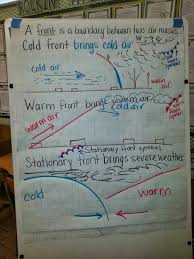 A front is a boundary between two air masses
Cold front brings cold air
cold air
Warm front brings warm air
cold air
warm air
Stationary front symbol
Stationary front brings severe weather
cold
warm